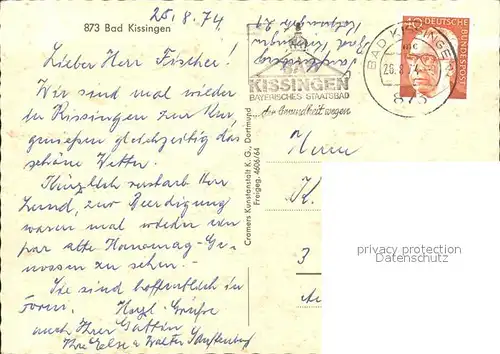 25.8.74
873 Bad Kissingen
Lieber Herr Fischer!
Wir sind mal wieder
in Kissingen zur Kur,
geniesen gleichzeitig das
schöne Wetter.
Kürzlich verstarb Herr
Lund, zur Beerdigung
waren mal wieder ein
par alte Hanomag-Ge-
nossen zu sehen.
Sie sind hoffentlich in
Form. Herzl. Grüße
auch Ihrer Gattin
Ihre Else u Walter
Cramers Kunstanstalt K. G., Dortmund
Freigeg. 4606/64
Bad Kissingen
BAD
KISSINGEN
BAYERISCHES STAATSBAD
...der Gesundheit wegen
BAD KISSINGEN
26.8.74
873
DEUTSCHE BUNDESPOST
Herrn
K.
3
privacy protection
Datenschutz